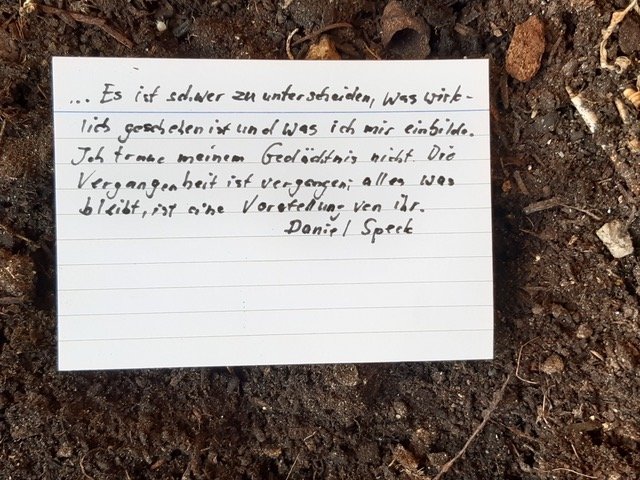 ... Es ist schwer zu unterscheiden, was wirk-
lich geschehen ist und was ich mir einbilde.
Ich traue meinem Gedächtnis nicht. Die
Vergangenheit ist vergangen; alles was
bleibt, ist eine Vorstellung von ihr.
Daniel Speck